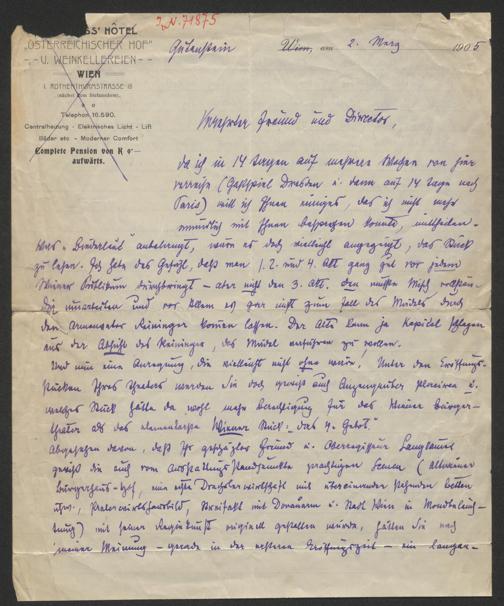 J.N. 71875
HÔTEL
„ÖSTERREICHISCHER HOF"
U. WEINKELLEREIEN
WIEN
I. ROTHENTHURMSTRASSE 18
(nächst dem Stefansdom).
Telephon 16.590.
Centralheizung - Elektrisches Licht - Lift
Bäder etc - Moderner Comfort
Complete Pension von K 9·—
aufwärts.
Gutenstein Wien, am 2. März 1905
Verehrter Freund und Director,
da ich in 14 Tagen auf mehrere Wochen von hier
verreise (Gastspiel Dresden u. dann auf 14 Tage nach
Paris) will ich Ihnen einiges, das ich nicht mehr
mündlich mit Ihnen besprechen konnte, mittheilen.
Was „Bruderlieb" anbelangt, wäre es doch vielleicht angezeigt, das Stück
zu lesen. Ich habe das Gefühl, daß man 1. 2. und 4. Akt ganz gut vor jedem
Wiener Publikum durchbringt – aber nicht den 3. Akt. Den müßte
umarbeiten und vor Allem es gar nicht zum Fall des Mädels durch
den Armenvater Reininger kommen lassen. Der Alte kann ja Kapital schlagen
aus der Absicht des Reininger, das Mädel verführen zu wollen.
Und nun eine Anregung, die vielleicht nicht ohne wäre. Unter den Eröffnungs-
stücken Ihres Theaters werden Sie doch gewiß auch Anzengruber placiren u.
welches Stück hätte da wohl mehr Berechtigung für das Wiener Bürger-
theater als das Wiener Stück: „das 4. Gebot".
Abgesehen davon, daß Ihr geschätzter Freund u. Oberregisseur Langkammer
gewiß die auch vom Ausstattungsstandpunkte prächtigen Scenen (altwiener
Bürgerhaus-Hof, eine echte Drechslerwirthschaft mit nebeneinander stehenden Betten
und Stadt Wien in Mondbeleuch-
tung) mit seiner Regiekunst originell gestalten würde, hätten Sie nach
meiner Meinung – gerade in der ersten Eröffnungszeit – ein